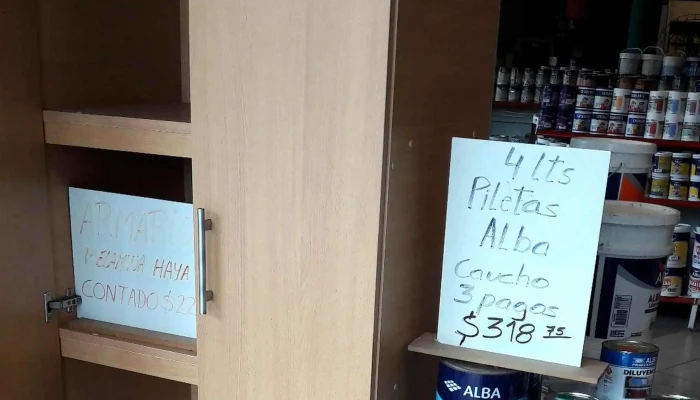 ARMARIO
MELAMINA HAYA
CONTADO $22
4 lts
Piletas
Alba
Caucho
3 pagos
$318 75
ALBA
DILUYEN